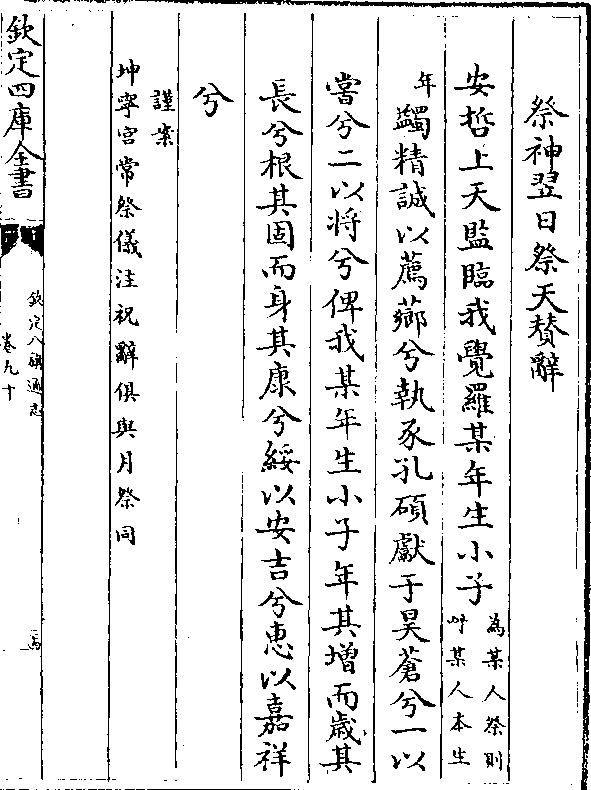 祭神翌日祭天贊辭
安哲上天監臨我覺羅某年生小子為某人祭則
叶某人本生
年蠲精誠以薦薌兮執豕孔碩獻于昊蒼兮一以
嘗兮二以將兮俾我某年生小子年其增而歲其
長兮根其固而身其康兮綏以安吉兮惠以嘉祥
兮
謹案
坤寧宮常祭儀注祝辭俱與月祭同
欽定四庫全書
欽定八旗通志
卷九十